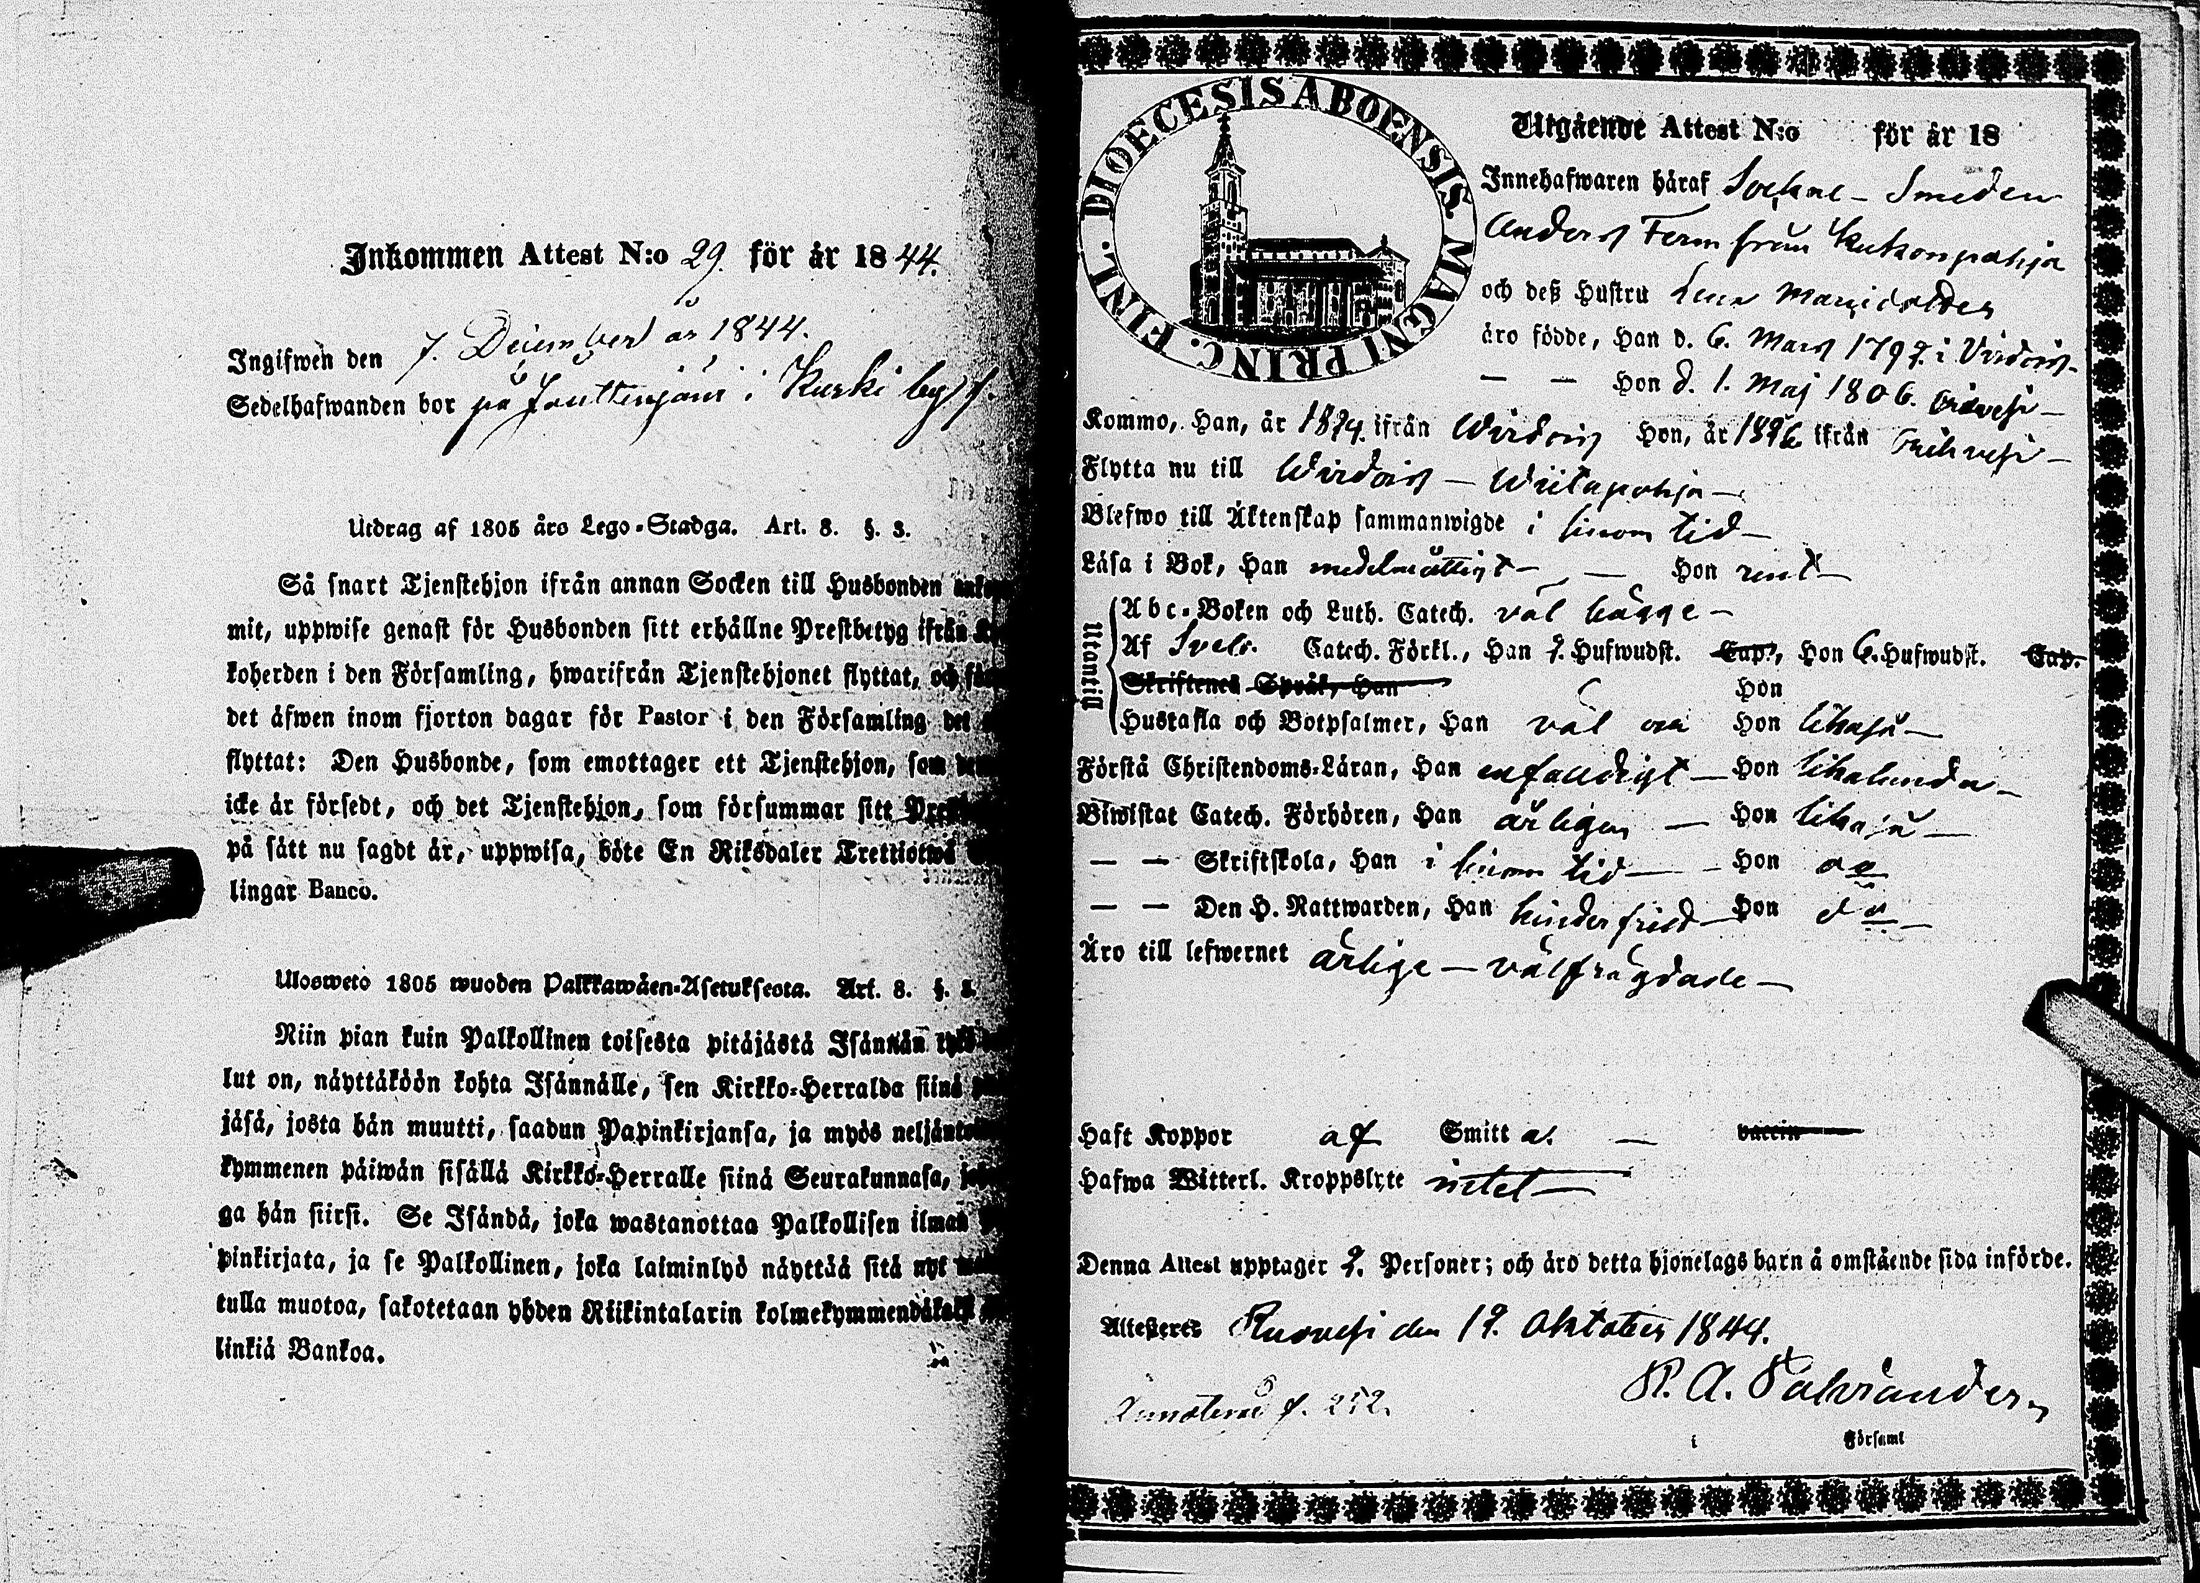 Inkommen Attest N:o 29. för år 1844.
Ingifwen den 7. December år 1844.
Sedelhafwanden bor på Jäuttenjärvi i Kurki by
Utdrag af 1805 års Lego-Stadga. Art. 8. §. 3.
Så snart Tjenstehjon ifrån annan Socken till Husbonden
mit, uppwise genast för Husbonden sitt erhållne Prestbetyg ifrån
koherden i den Församling, hwarifrån Tjenstehjonet flyttat, och
det äfwen inom fjorton dagar för Pastor i den Församling det
flyttat: Den Husbonde, som emottager ett Tjenstehjon, som
icke är försedt, och det Tjenstehjon, som försummar sitt
på sätt nu sagdt är, uppwisa, böte En Riksdaler Trettiotwå
lingar Banco.
Uloswetö 1805 wuoden Palkkawäen-Asetuksesta. Art. 8. §. 3.
Niin pian kuin Palkollinen toisesta pitäjästä Isännän
lut on, näyttäköön kohta Isännälle, sen Kirkko-Herralda siinä
jäsä, josta hän muutti, saadun Papinkirjansa, ja myös
kymmenen päiwän sisällä Kirkko-Herralle siinä Seurakunnasa,
ga hän siirsi. Se Isändä, joka wastanottaa Palkollisen ilman
pinkirjata, ja se Palkollinen, joka laiminlyö näyttää sitä nyt
tulla muotoa, sakotetaan yhden Riikintalarin
linkiä Bankoa.
FINL. DIOECESIS ABOENSIS MAGNI PRINC.
Utgående Attest N:o för år 18
Innehafwaren häraf Sockne-Smeden
Anders Ferm från Kukonpohja
och deß Hustru Lena Margidotter
äro födde, Han d. 6. Mars 1799. i Virdois
— — Hon d. 1. Maj 1806.
Kommo, Han, år 1824. ifrån Wirdois Hon, år 1826 ifrån
Flytta nu till Wirdois — Wiitapohja —
Blefwo till Äktenskap sammanwigde i sinom tid —
Läsa i Bok, Han medelmåttigt — — Hon rent —
Utantill
Abc-Boken och Luth. Catech. väl bägge —
Af Sveb. Catech. Förkl., Han 2. Hufwudst. Cap., Hon 6. Hufwudst. Cap.
Skriftenes Språk, Han Hon
Hustafla och Botpsalmer, Han väl Hon likaså —
Förstå Christendoms-Läran, Han enfaldigt — Hon likalunda —
Biwistat Catech. Förhören, Han årligen — Hon likaså —
— — Skriftskola, Han i sinom tid — Hon do
— — Den H. Nattwarden, Han hinderfrid — Hon do —
Äro till lefwernet ärlige — välfrägdade —
Haft Koppor af Smitta. — vaccin
Hafwa Witterl. Kroppslyte intet —
Denna Attest upptager 2. Personer; och äro detta hjonelags barn å omstående sida införde.
Attesteres Ruovesi den 19. Oktober 1844.
Annoterad f. 252.
i Församl